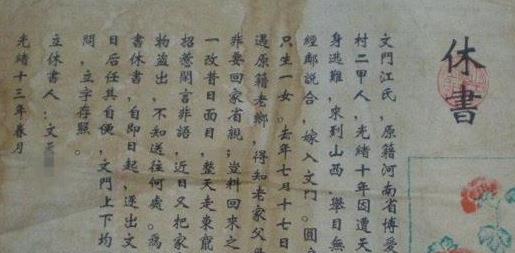 休書
文門江氏，原籍河南省博愛
村二甲人，光緒十年因遭天
身逃難，來到山西，舉目無
經鄰說合，嫁入文門。圓
只生一女。去年七月十七日
遇原籍老鄉，得知老家父
非要回家省親；豈料回來之
一改昔日面目，整天走東竄
招惹閑言非語，近日又把家
物盜出，不知送往何處。為
書休書，自即日起，逐出文
日后任其自便，文門上下均
問，立字存照。
立休書人：文
光緒十三年春月